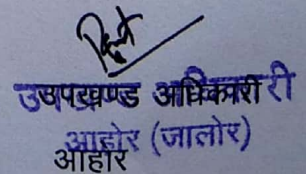 उपखण्ड अधिकारी
आहोर (जालोर)
आहोर